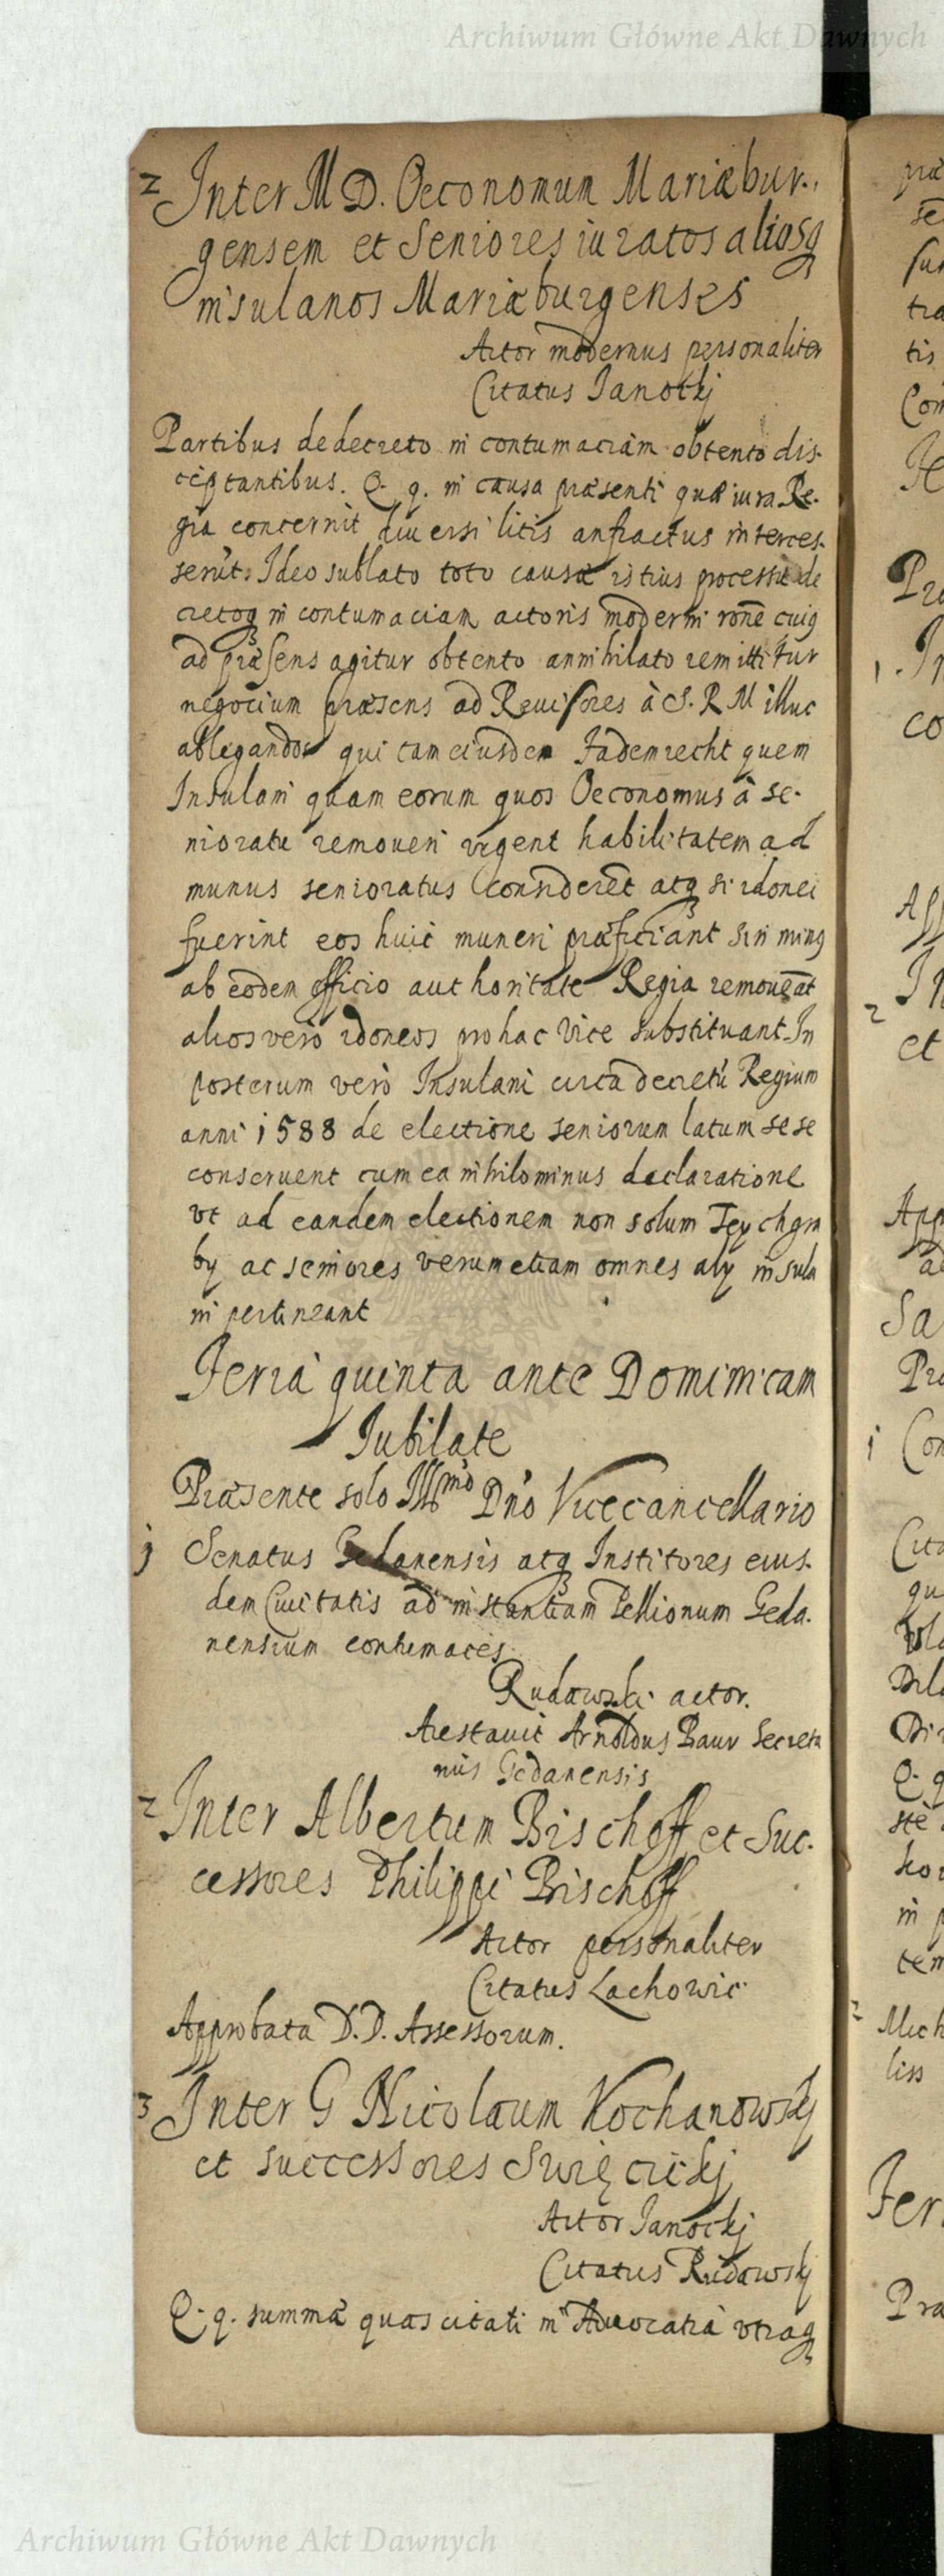 Archiwum Główne Akt Dawnych
2 Inter M D. Oeconomum Mariæbur.,
gensem et Seniores iuratos aliosq
insulanos Mariæburgenses
Actor modernus personaliter
Citatus Janockj
Partibus de decreto in contumaciam obtento dis-
ceptantibus. Q. q. in causa præsenti quæ iura Re-
gia concernit diuersi litis anfractus interces-
serūt. Ideo sublato toto causæ istius processu de
cretoq in contumaciam actoris moderni rōne cuiq
ad præsens agitur obtento annihilato remittitur
negocium præsens ad Reuisores à S. R M illuc
ablegandos qui tam eiusdem Fademrecht quem
Insulani quam eorum quos Oeconomus à se-
nioratu remoueri vrgent habilitatem ad
munus senioratus considerēt atq si idonei
fuerint eos huic muneri præficiant sin minq
ab eodem officio authoritate Regia remoueāt
alios vero idoneos pro hac vice substituant. In
posterum vero Insulani circa decretū Regium
anni 1588 de electione seniorum latum sese
conseruent cum ea nihilominus declaratione
vt ad eandem electionem non solum Teychgrn
by ac seniores verum etiam omnes aly insula
ni pertineant
Feria quinta ante Dominicam
Iubilate
Præsente solo Illmo Dno Vicecancellario
1 Senatus Gedanensis atq Institores eius-
dem Ciuitatis ad instantiam Pellionum Geda-
nensium contumaces
Rudowski actor.
Arestauit Arnoldus Baur Secreta
rius Gedanensis
2 Inter Albertum Bischoff et Suc-
cessores Philippi Bischoff
Actor personaliter
Citatus Lachowic
Approbata D.D. Assessorum.
3 Inter G Nicolaum Kochanowskj
et successores Swięcickj
Actor Janockj
Citatus Rudowskj
Q. q. summa quas citati in Aduocatia vtraq
Archiwum Główne Akt Dawnych